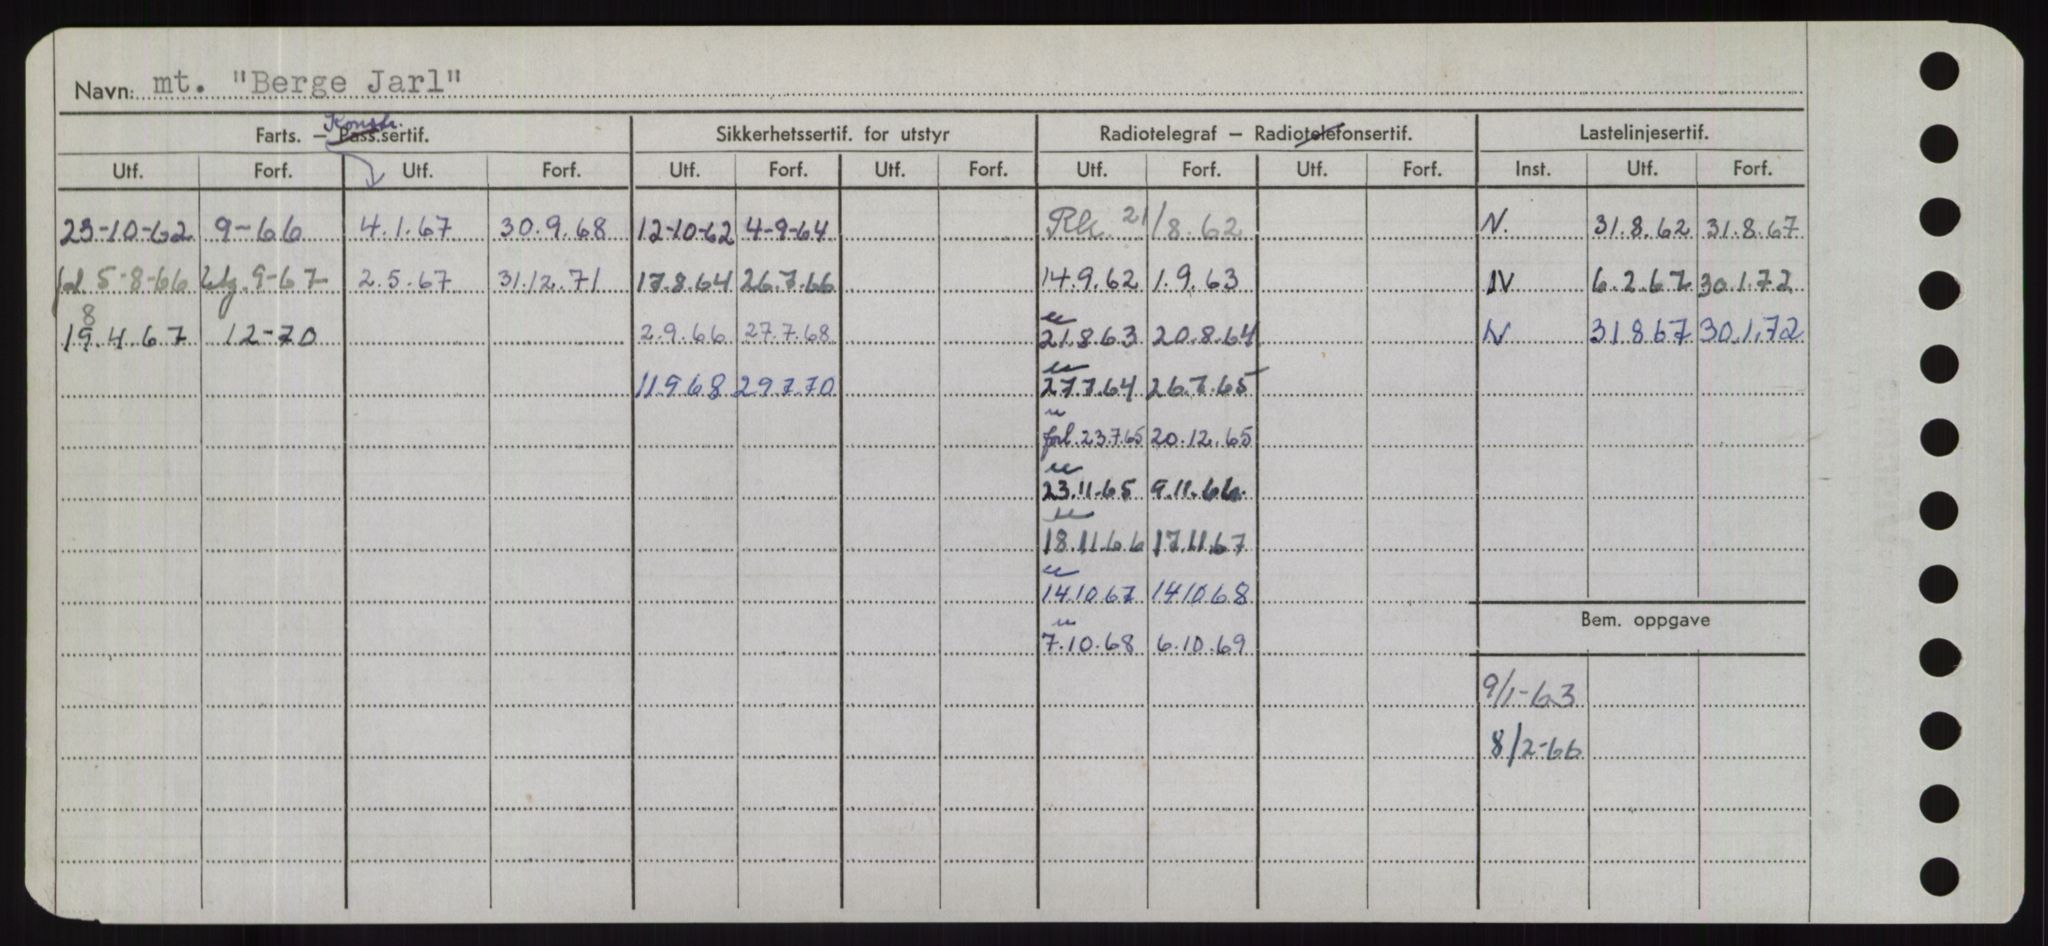 Navn: mt. "Berge Jarl"
Farts. – Pass.sertif. Konstr. Sikkerhetssertif. for utstyr Radiotelegraf – Radiotelefonsertif. Lastelinjesertif.
Utf. Forf. Utf. Forf. Utf. Forf. Utf. Forf. Utf. Forf. Utf. Forf. Inst. Utf. Forf.
23-10-62 9-66 4.1.67 30.9.68 12-10-62 4-9-64 21/8.62 N. 31.8.62 31.8.67
5-8-66 9-67 2.5.67 31.12.71 17.8.64 26.7.66 14.9.62 1.9.63 N 6.2.67 30.1.72
8
19.4.67 12-70 2.9.66 27.7.68 21.8.63 20.8.64 N 31.8.67 30.1.72
11.9.68 29.7.70 27.7.64 26.7.65
forl. 23.7.65 20.12.65
23.11.65 9.11.66.
18.11.66 17.11.67
14.10.67 14.10.68
Bem. oppgave
7.10.68 6.10.69
9/1-63
8/2-66